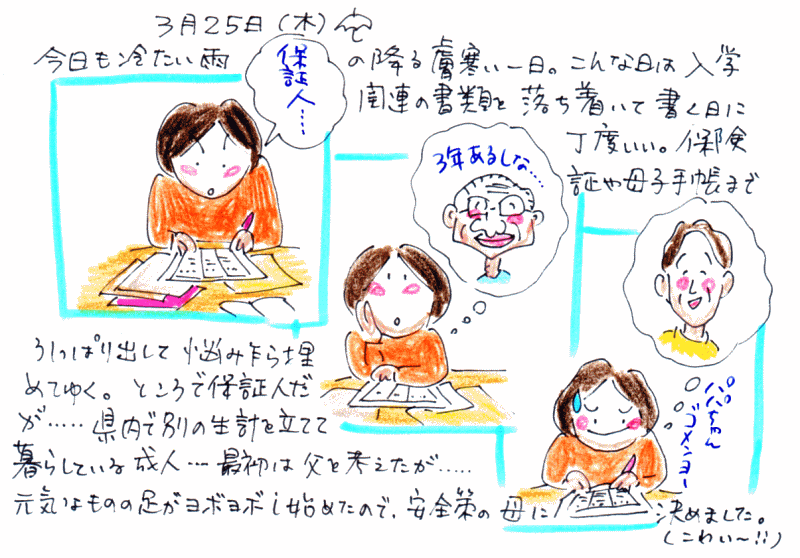 3月25日(木)
今日も冷たい雨
の降る膚寒い一日。こんな日は入学
関連の書類を落ち着いて書く日に
丁度いい。保険
証や母子手帳まで
保証人…
3年あるしな….
引っぱり出して悩み乍ら埋
めてゆく。ところで保証人だ
が….. 県内で別の生計を立てて
暮らしている成人… 最初は父を考えたが…..
元気なものの足がヨボヨボし始めたので、安全策の母に決めました。
(こわい〜!!)
パパちゃん
ゴメンヨー